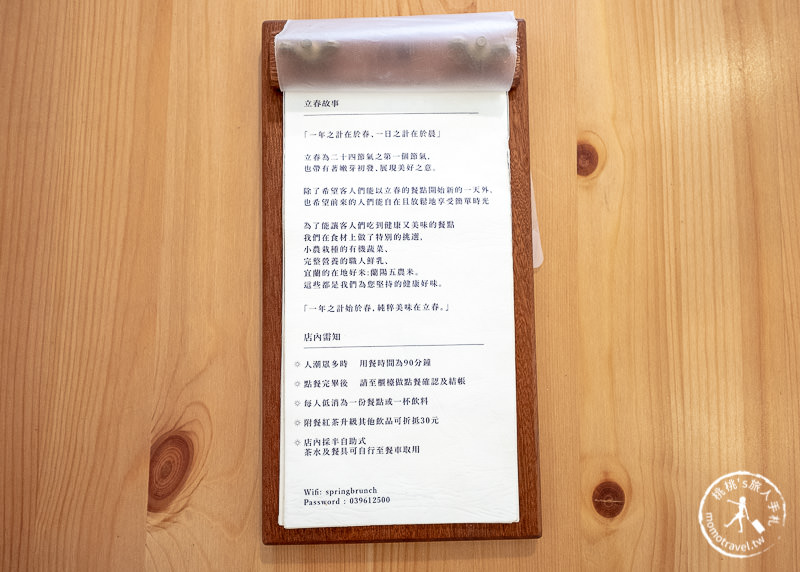 立春故事
「一年之計在於春，一日之計在於晨」
立春為二十四節氣之第一個節氣，
也帶有著嫩芽初發、展現美好之意。
除了希望客人們能以立春的餐點開始新的一天外，
也希望前來的人們能自在且放鬆地享受簡單時光
為了能讓客人們吃到健康又美味的餐點
我們在食材上做了特別的挑選、
小農栽種的有機蔬菜、
完整營養的職人鮮乳、
宜蘭的在地好米:蘭陽五農米。
這些都是我們為您堅持的健康好味。
「一年之計始於春，純粹美味在立春。」
店內需知
☼ 人潮眾多時 用餐時間為90分鐘
☼ 點餐完畢後 請至櫃檯做點餐確認及結帳
☼ 每人低消為一份餐點或一杯飲料
☼ 附餐紅茶升級其他飲品可折抵30元
☼ 店內採半自助式
茶水及餐具可自行至餐車取用
Wifi: springbrunch
Password : 039612500
桃桃's旅人手札
momotravel.tw